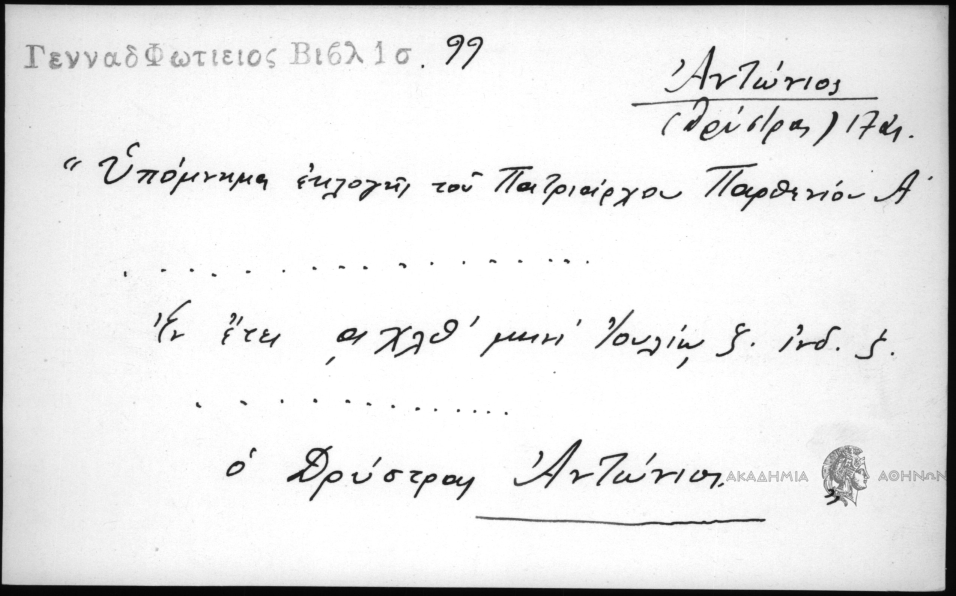 ΓενναδΦωτιειος Βιβλ 1σ. 99
Ἀντώνιος
(Δρύστρας) 17 αἰ.
“ Ὑπόμνημα ἐκλογῆς τοῦ Πατριάρχου Παρθενίου Α´
. . . . . . . . . . . . . . . . . .
Ἐν ἔτει ͵αχλθ´ μηνὶ Ἰουλίῳ ξ. ἰνδ. ξ.
. . . . . . . . . . . . . .
ὁ Δρύστρας Ἀντώνιος.
ΑΚΑΔΗΜΙΑ ΑΘΗΝΩΝ